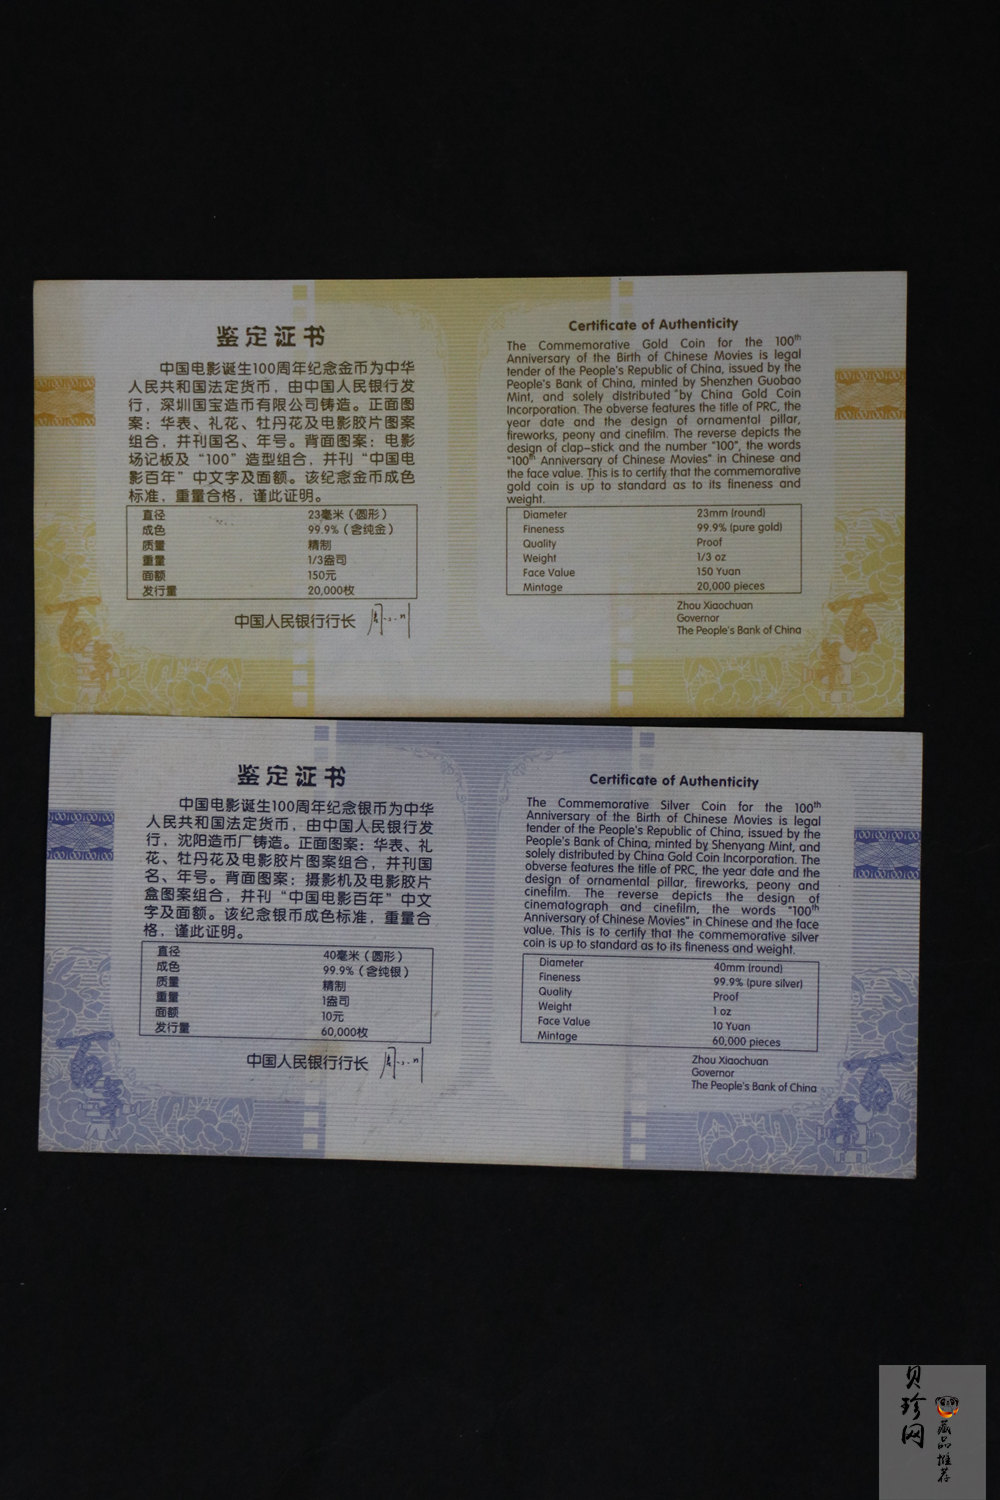 鉴定证书
中国电影诞生100周年纪念金币为中华
人民共和国法定货币，由中国人民银行发
行，深圳国宝造币有限公司铸造。正面图
案：华表、礼花、牡丹花及电影胶片图案
组合，并刊国名、年号。背面图案：电影
场记板及“100”造型组合，并刊“中国电
影百年”中文字及面额。该纪念金币成色
标准，重量合格，谨此证明。
直径 23毫米（圆形）
成色 99.9%（含纯金）
质量 精制
重量 1/3盎司
面额 150元
发行量 20,000枚
中国人民银行行长
Certificate of Authenticity
The Commemorative Gold Coin for the 100th
Anniversary of the Birth of Chinese Movies is legal
tender of the People's Republic of China, issued by the
People's Bank of China, minted by Shenzhen Guobao
Mint, and solely distributed by China Gold Coin
Incorporation. The obverse features the title of PRC, the
year date and the design of ornamental pillar,
fireworks, peony and cinefilm. The reverse depicts the
design of clap-stick and the number "100", the words
"100th Anniversary of Chinese Movies" in Chinese and
the face value. This is to certify that the commemorative
gold coin is up to standard as to its fineness and
weight.
Diameter 23mm (round)
Fineness 99.9% (pure gold)
Quality Proof
Weight 1/3 oz
Face Value 150 Yuan
Mintage 20,000 pieces
Zhou Xiaochuan
Governor
The People's Bank of China
百年
百年
鉴定证书
中国电影诞生100周年纪念银币为中华
人民共和国法定货币，由中国人民银行发
行，沈阳造币厂铸造。正面图案：华表、礼
花、牡丹花及电影胶片图案组合，并刊国
名、年号。背面图案：摄影机及电影胶片
盒图案组合，并刊“中国电影百年”中文
字及面额。该纪念银币成色标准，重量合
格，谨此证明。
直径 40毫米（圆形）
成色 99.9%（含纯银）
质量 精制
重量 1盎司
面额 10元
发行量 60,000枚
中国人民银行行长
Certificate of Authenticity
The Commemorative Silver Coin for the 100th
Anniversary of the Birth of Chinese Movies is legal
tender of the People's Republic of China, issued by the
People's Bank of China, minted by Shenyang Mint, and
solely distributed by China Gold Coin Incorporation. The
obverse features the title of PRC, the year date and the
design of ornamental pillar, fireworks, peony and
cinefilm. The reverse depicts the design of
cinematograph and cinefilm, the words "100th
Anniversary of Chinese Movies" in Chinese and the face
value. This is to certify that the commemorative silver
coin is up to standard as to its fineness and weight.
Diameter 40mm (round)
Fineness 99.9% (pure silver)
Quality Proof
Weight 1 oz
Face Value 10 Yuan
Mintage 60,000 pieces
Zhou Xiaochuan
Governor
The People's Bank of China
百年
百年
贝珍网
藏品推荐